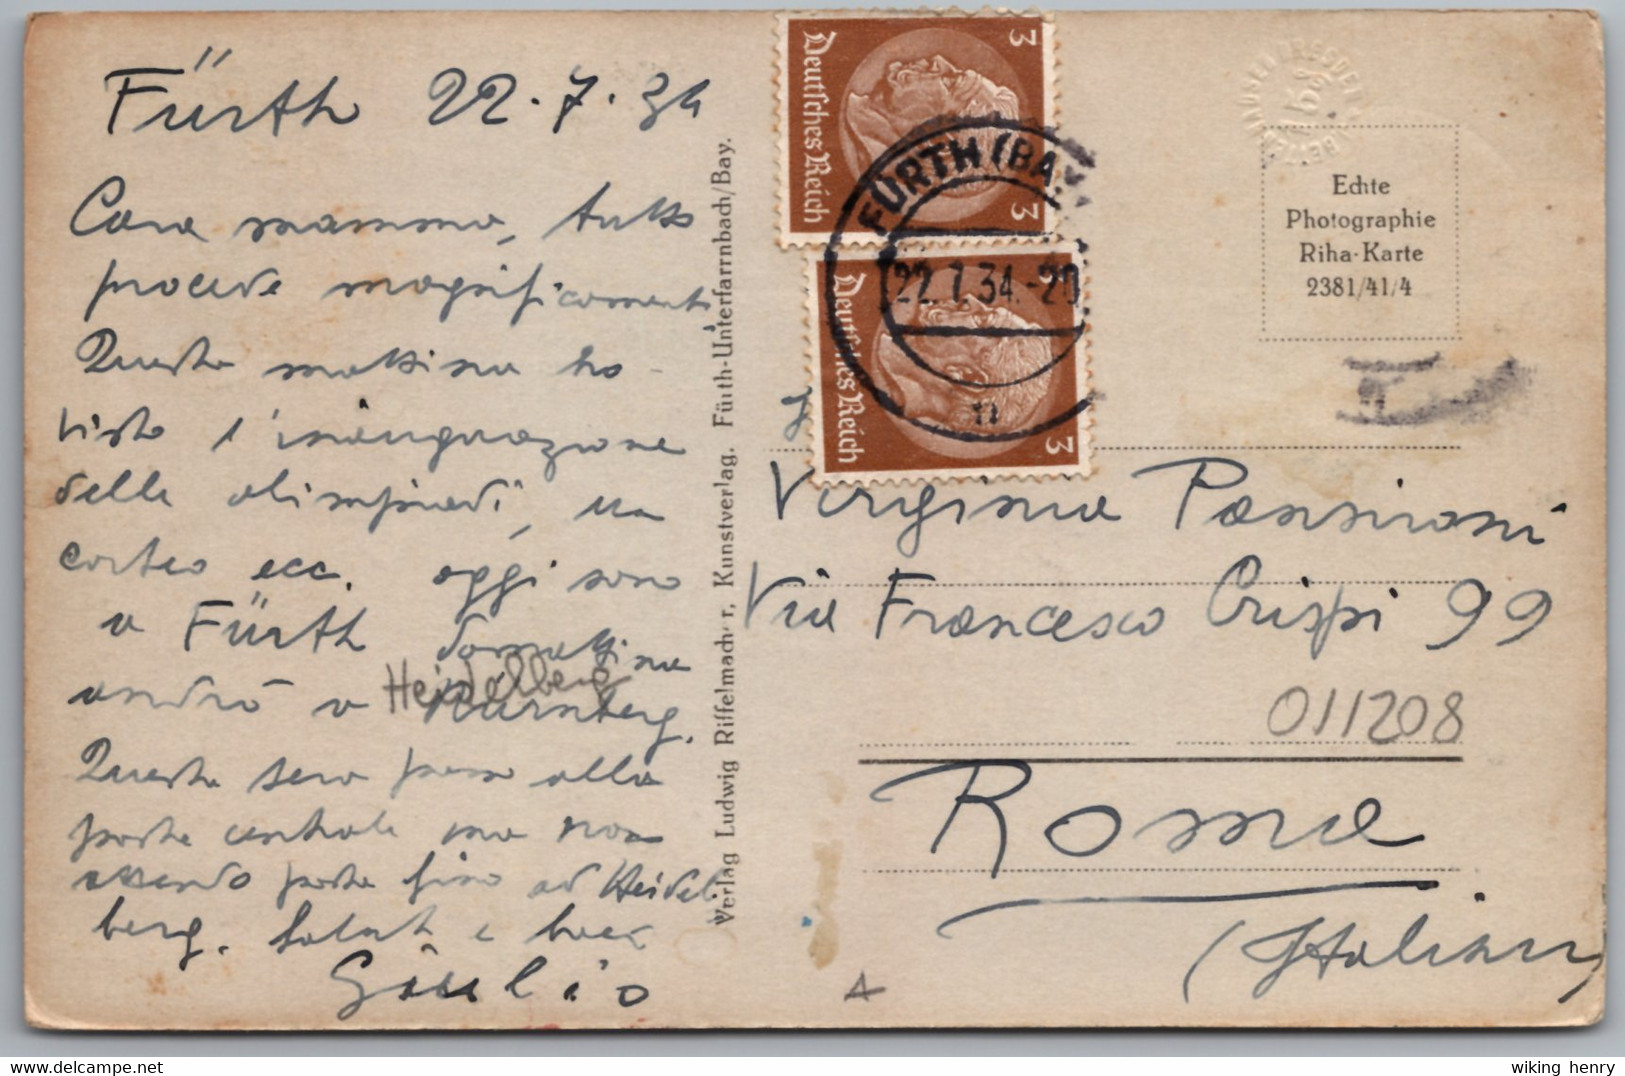 Fürth 22.7.34
Cara mamma, tutto
procede magnificamente
Questa mattina ho
visto l'inaugurazione
delle olimpiadi, un
corteo ecc. oggi sono
a Fürth domattina
andrò a Nürnberg.
Heidelberg
Questa sera passo alla
posta centrale ma non
essendo posta fino ad Heidel-
berg. Saluti e baci
Giulio
Verlag Ludwig Riffelmacher, Kunstverlag. Fürth-Unterfarrnbach/Bay.
Deutsches Reich
3
3
Deutsches Reich
3
FÜRTH (BAY
22.7.34.-20
n
Echte
Photographie
Riha-Karte
2381/41/4
Virginia
Via Francesco Crispi 99
011208
Roma
(Italien)
wiking henry